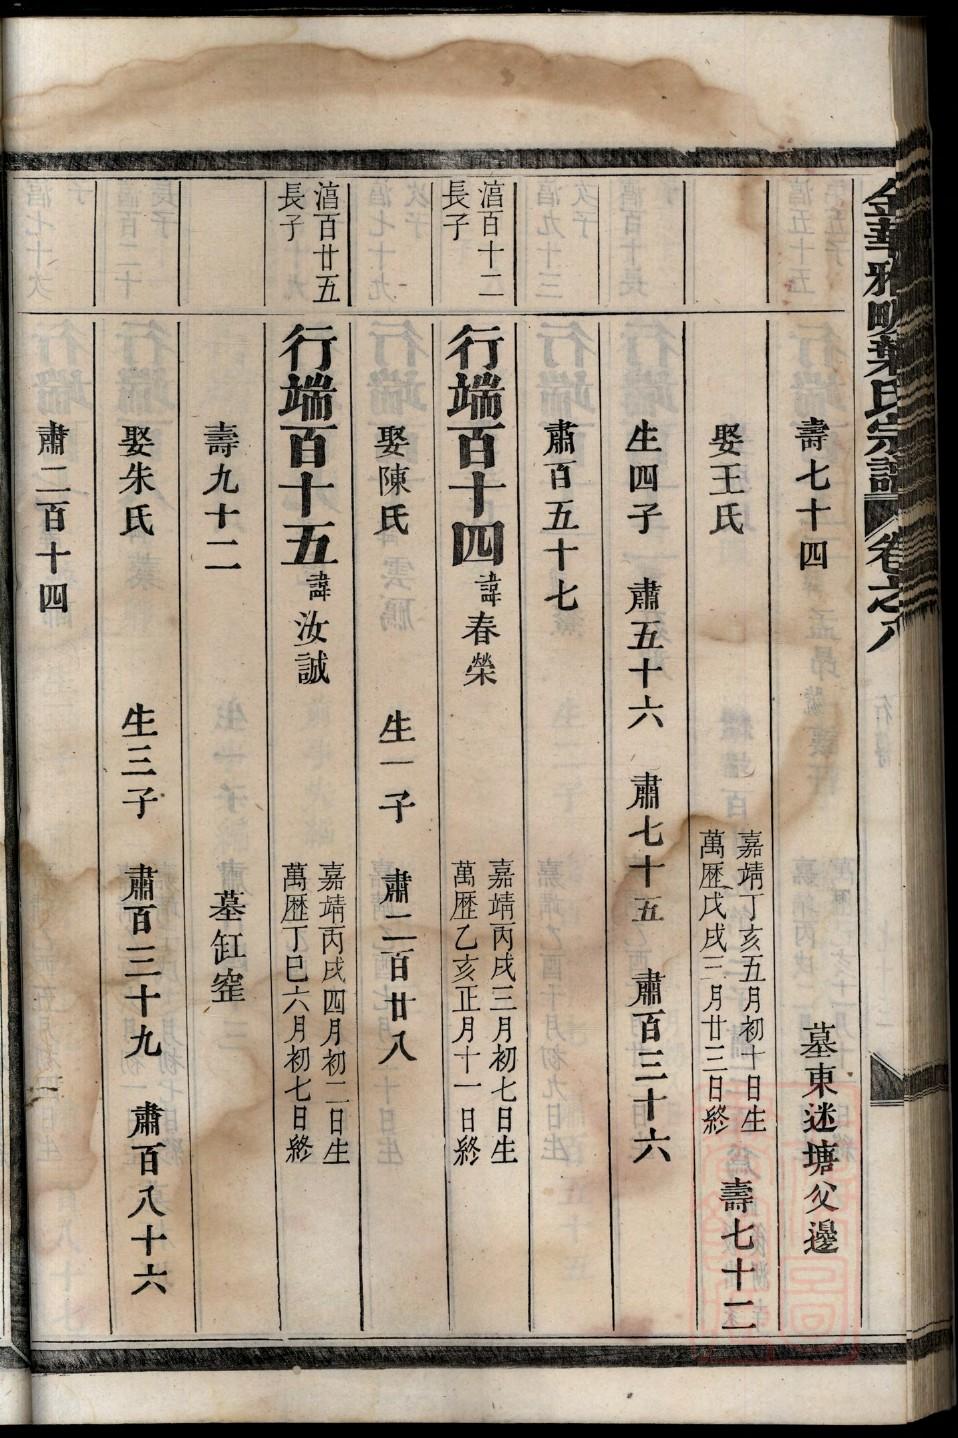 金華雅畈葉氏宗譜 卷之八
壽七十四 墓東迷塘父邊
娶王氏 嘉靖丁亥五月初十日生
萬歷戊戌三月廿三日終 壽七十二
生四子 肅五十六 肅七十五 肅百三十六
肅百五十七
湻百十二
長子
行端百十四 諱春榮 嘉靖丙戌三月初七日生
萬歷乙亥正月十一日終
娶陳氏 生一子 肅二百廿八
湻百廿五
長子
行端百十五 諱汝誠 嘉靖丙戌四月初二日生
萬歷丁巳六月初七日終
壽九十二 墓缸窑
娶朱氏 生三子 肅百三十九 肅百八十六
肅二百十四